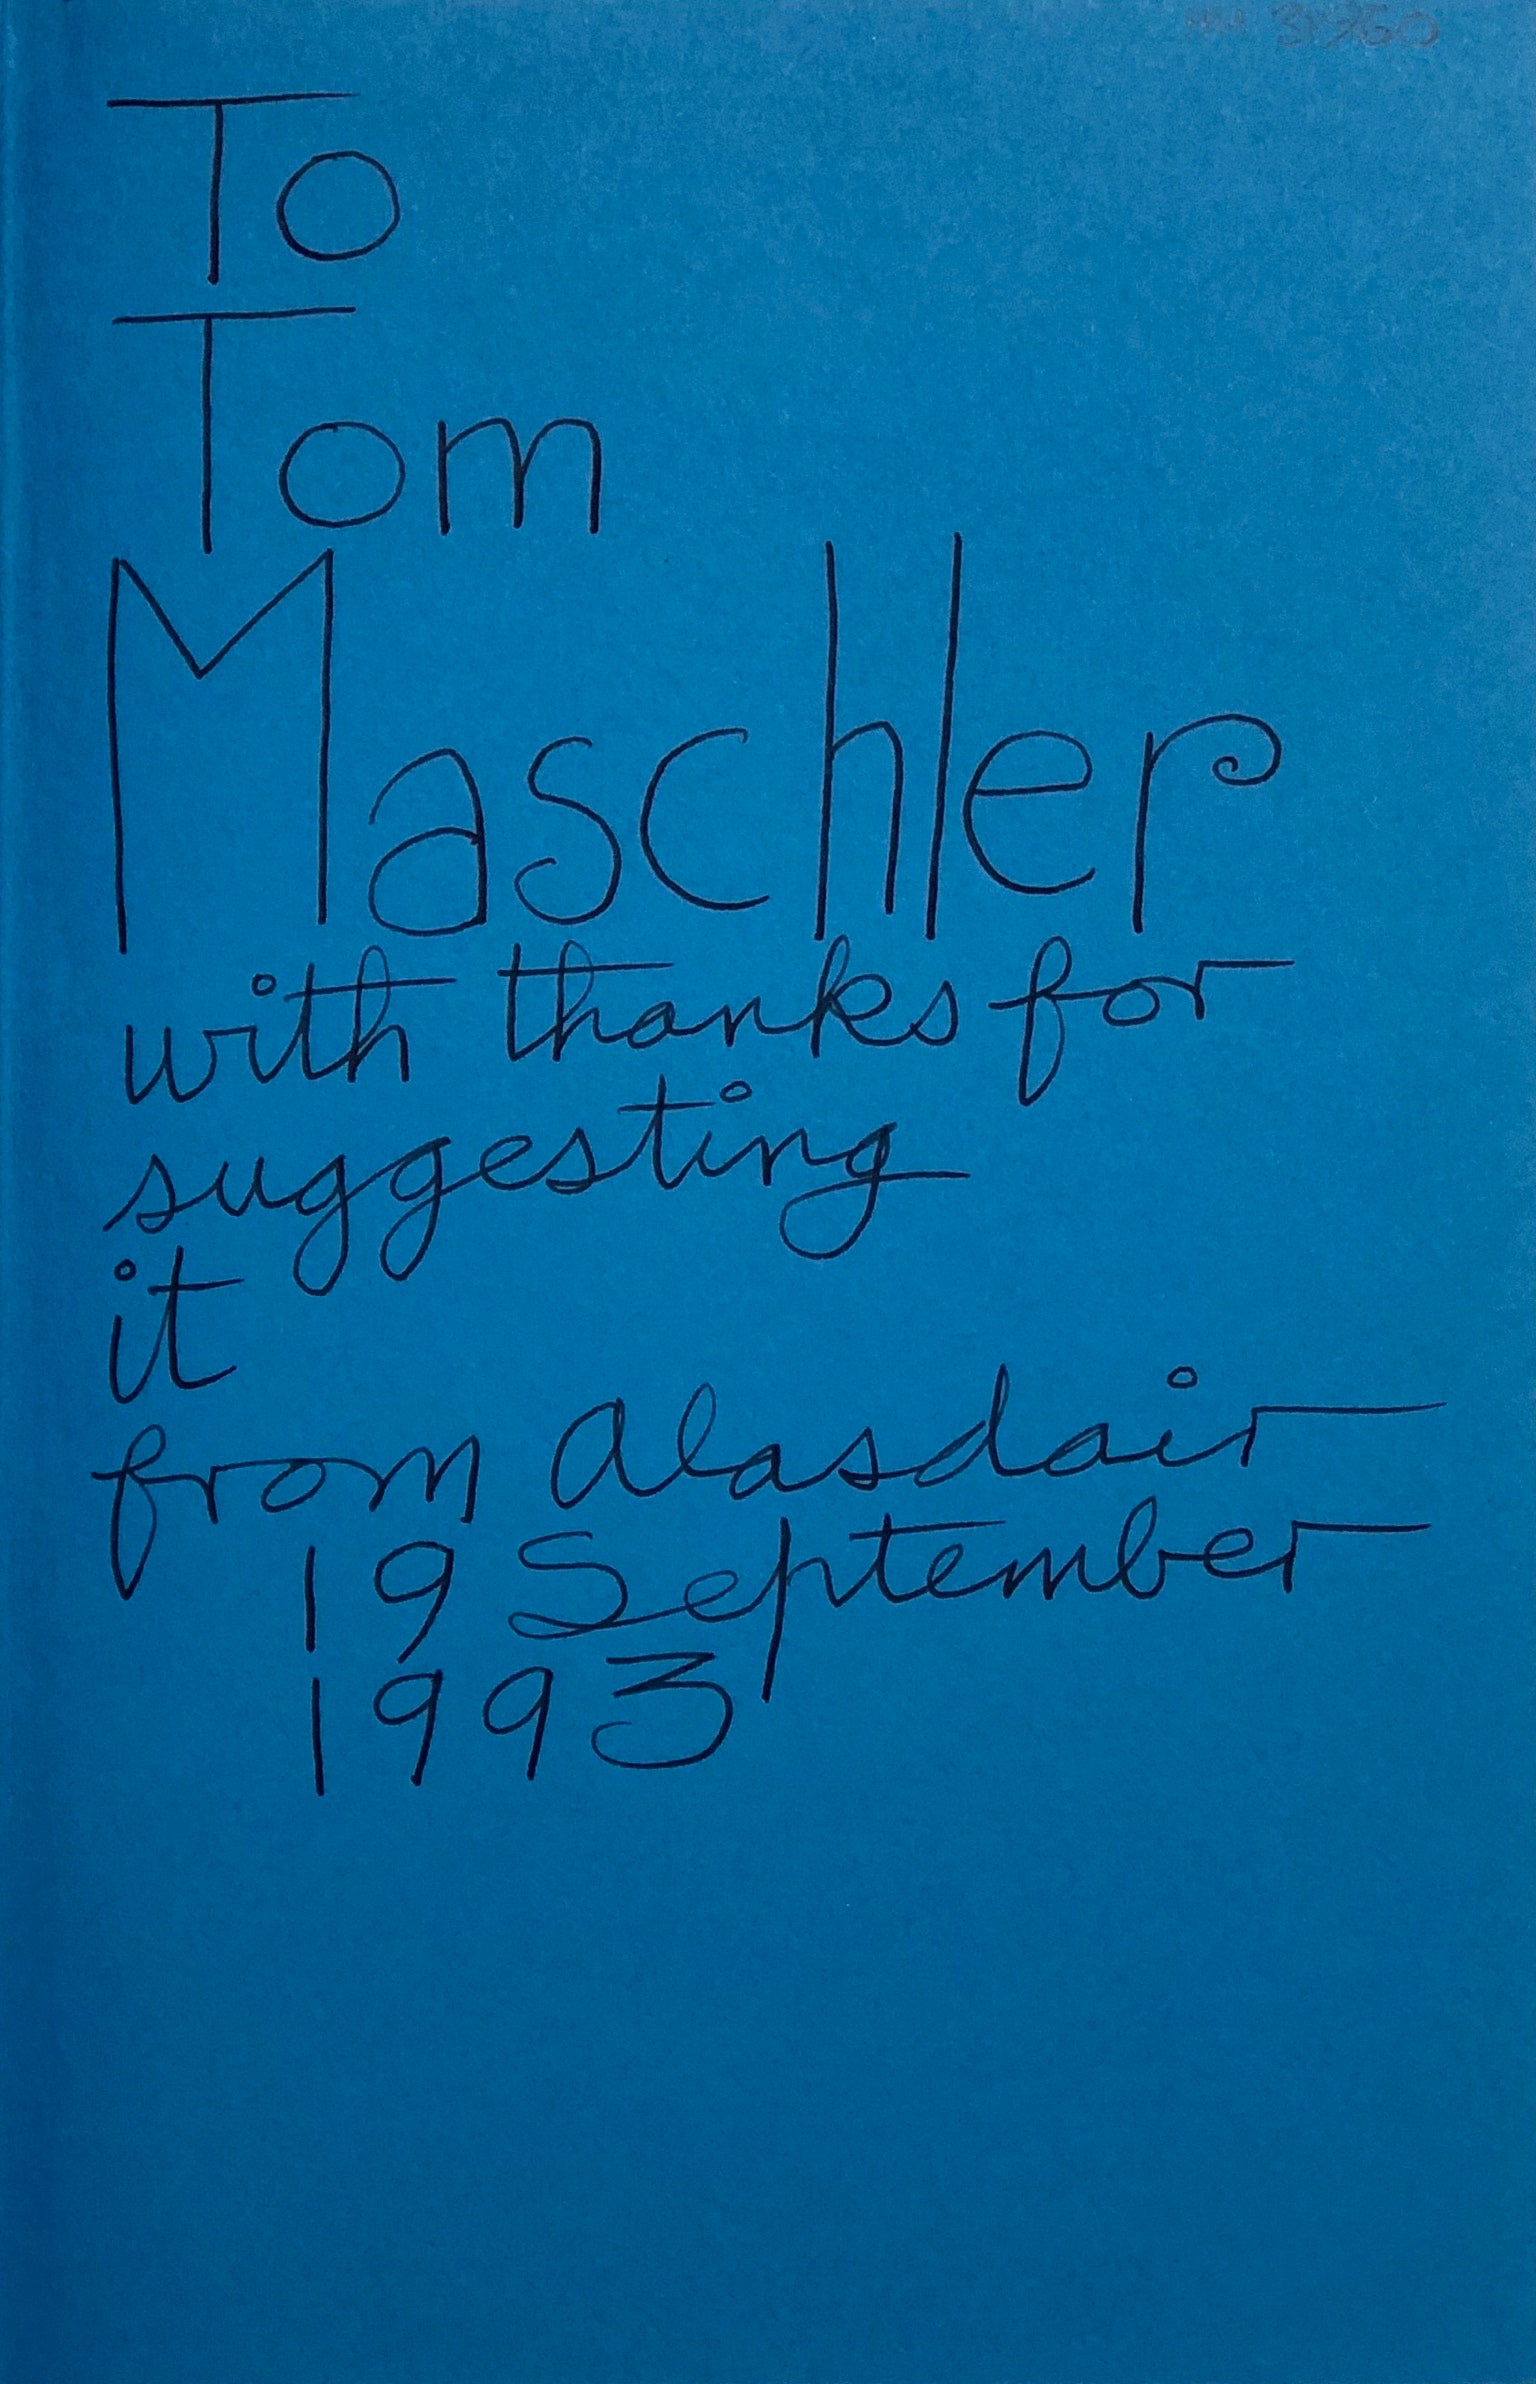 To
Tom
Maschler
with thanks for
suggesting
it
from Alasdair
19 September
1993